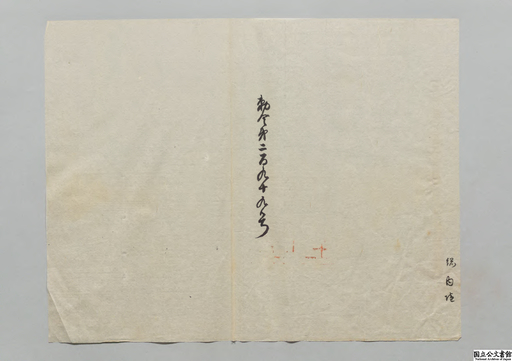 勅令第二百九十九号
国立公文書館
National Archives of Japan